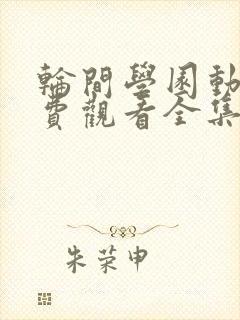 輪閒學園動
費觀看全集
朱荣申